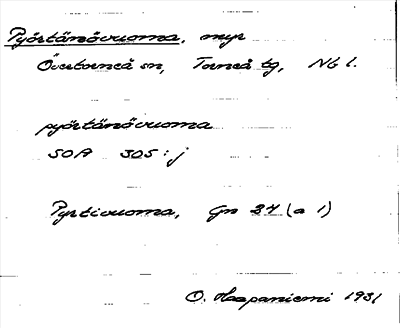 Pyörtänövuoma, myr
Övertorneå sn, Torneå tg, Nb l.
pyörtänövuoma
SOA 305:j
Pyrtivuoma, Gn 34 (a 1)
O. Haapaniemi 1931